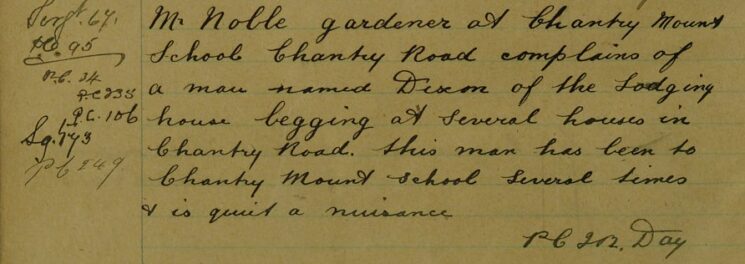 Sergt. 67.
P.C. 95
P.C. 24
P.C 233
P.C. 106
Sg. 143
PC 249
Mr Noble gardener at Chantry Mount
School Chantry Road complains of
a man named Dixon of the Lodging
house begging at several houses in
Chantry Road. this man has been to
Chantry Mount School Several times
& is quiet a nuisance
PC 202. Day